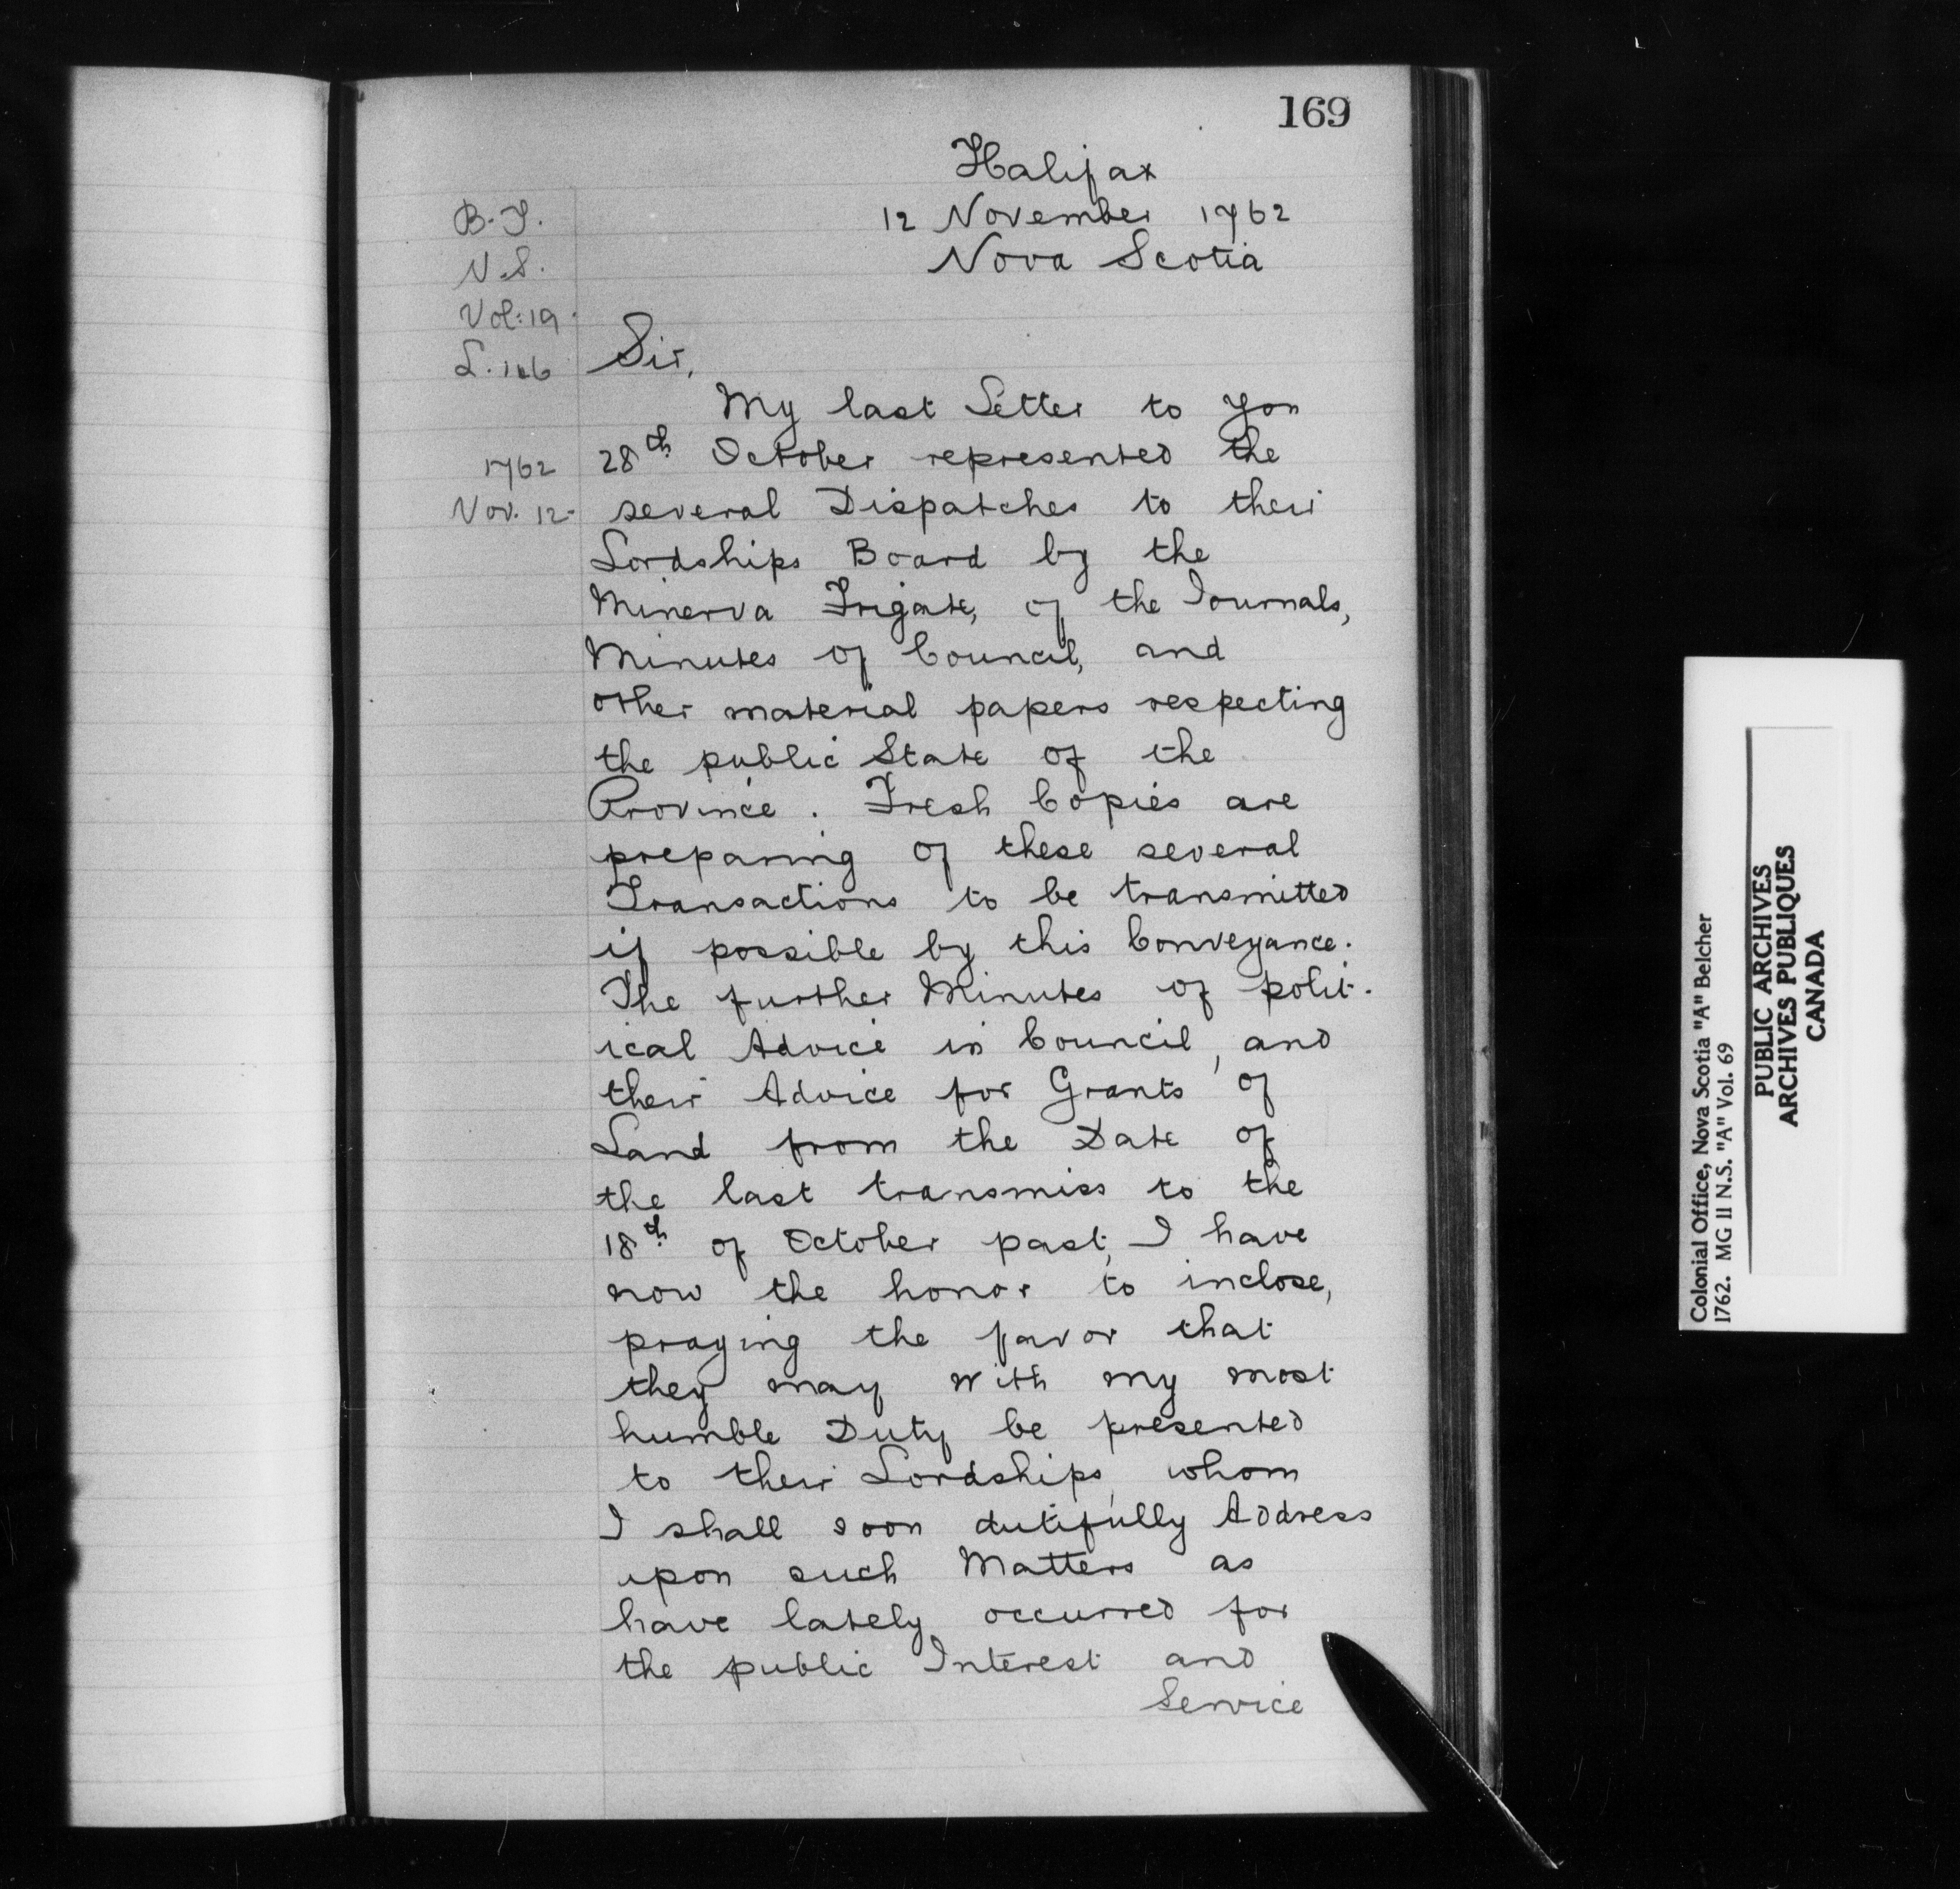 169
Halifax
12 November 1762
Nova Scotia
B.T.
N.S.
Vol: 19.
L. 146
Sir,
My last Letter to you
1762
Nov. 12.
28th October represented the
several Dispatches to their
Lordships Board by the
Minerva Frigate, of the Journals,
Minutes of Council, and
other material papers respecting
the public State of the
Province. Fresh Copies are
preparing of these several
Transactions to be transmitted
if possible by this Conveyance.
The further Minutes of polit-
ical Advice in Council, and
their Advice for Grants of
Land from the Date of
the last transmiss to the
18th of October past, I have
now the honor to inclose,
praying the favor that
they may with my most
humble Duty be presented
to their Lordships, whom
I shall soon dutifully Address
upon such Matters as
have lately occurred for
the public Interest and
Service
Colonial Office, Nova Scotia "A" Belcher
1762. MG 11 N.S. "A" Vol. 69
PUBLIC ARCHIVES
ARCHIVES PUBLIQUES
CANADA